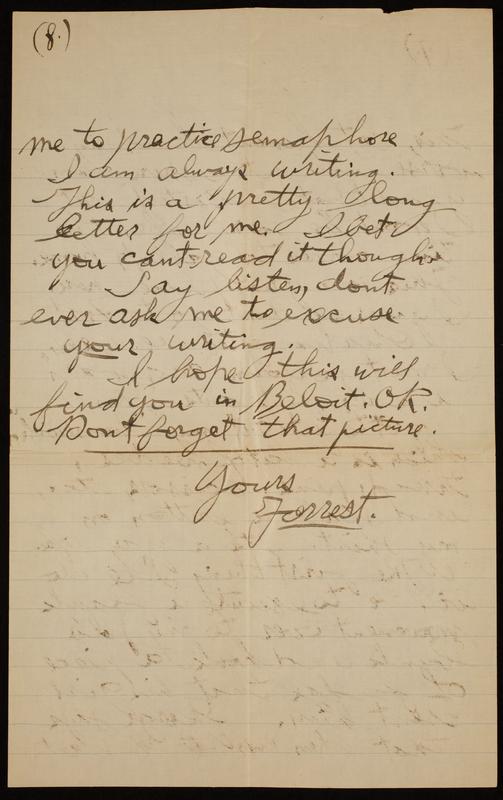 (8.)
me to practice semaphore
I am always writing.
This is a pretty long
letter for me. I bet
you cant read it though.
Say listen, dont
ever ask me to excuse
your writing.
I hope this will
find you in Beloit. OK.
Dont forget that picture.
Yours
Forrest.